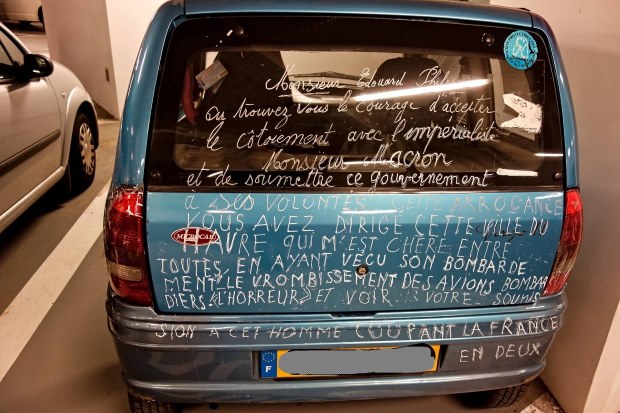 Monsieur Edouard Philippe
Où trouvez vous le courage d'accepter
le côtoiement avec l'impérialiste
Monsieur Macron
et de soumettre ce gouvernement
à SES VOLONTÉS CETTE ARROGANCE
VOUS AVEZ DIRIGÉ CETTE VILLE DU
HAVRE QUI M'EST CHÈRE ENTRE
MICROCAR
TOUTES, EN AYANT VÉCU SON BOMBARDE
MENT, LE VROMBISSEMENT DES AVIONS BOMBAR
DIERS (L'HORREUR) ET VOIR VOTRE SOUMIS
SION À CET HOMME COUPANT LA FRANCE
EN DEUX
F